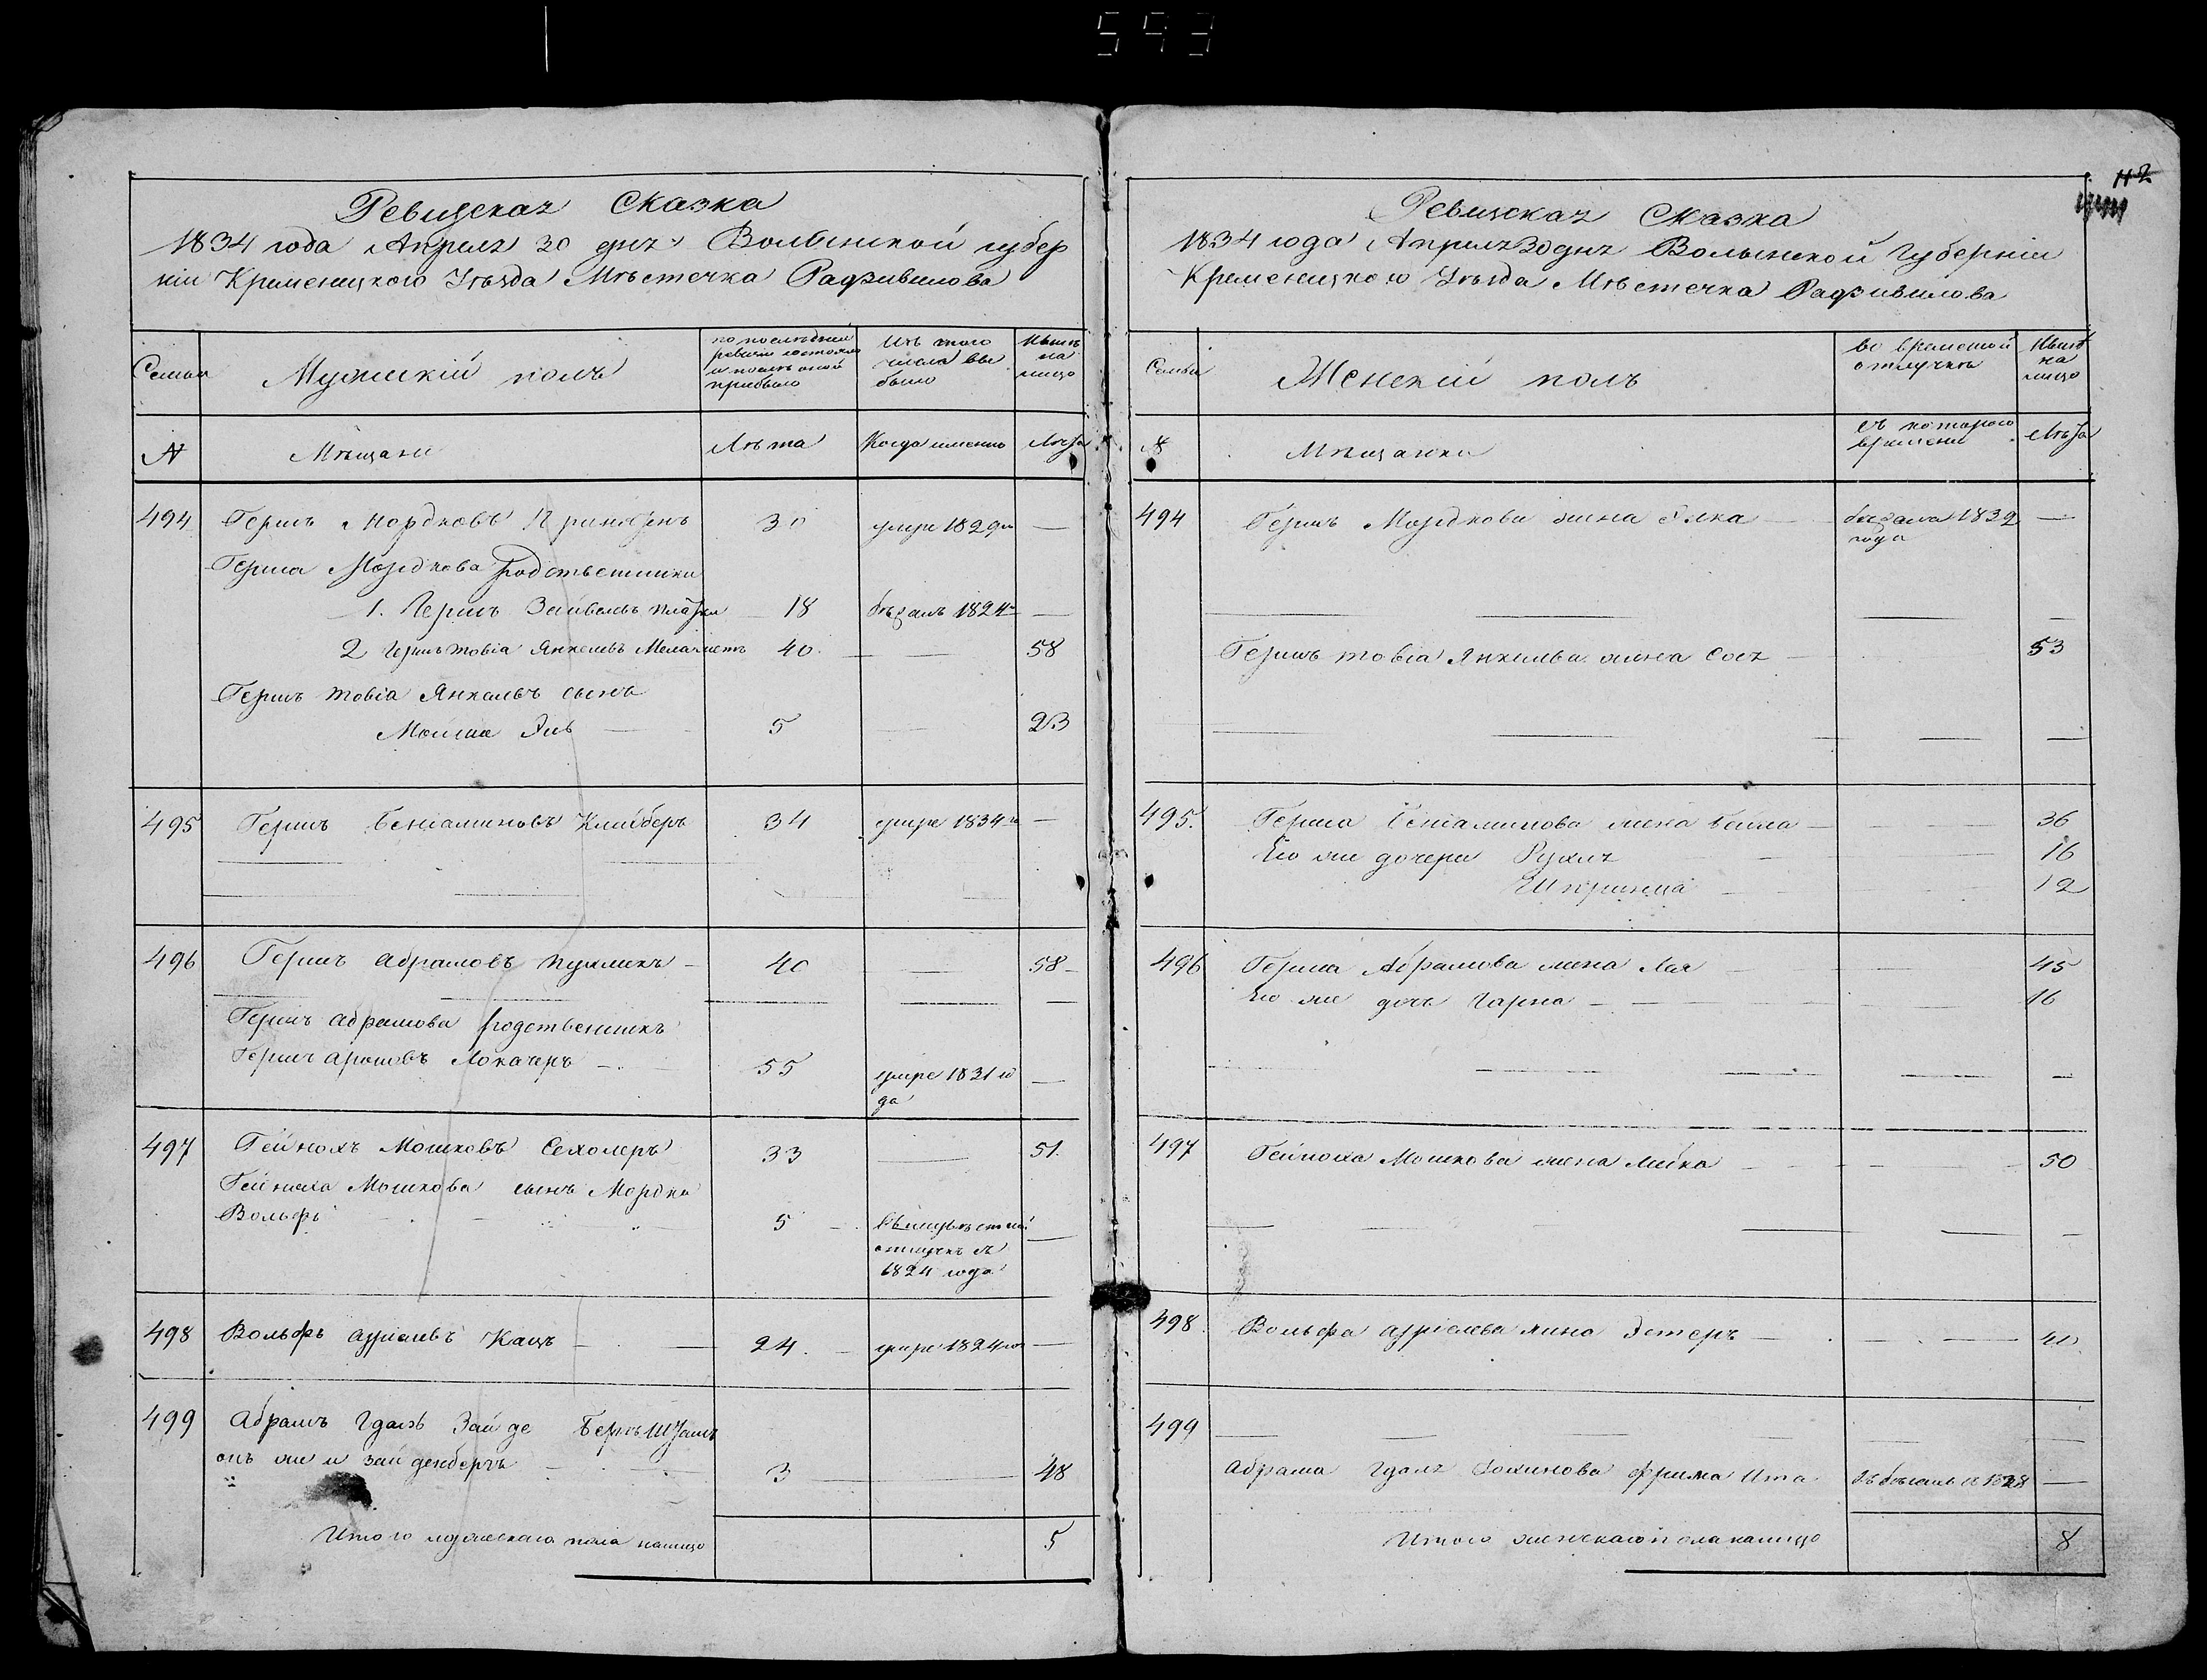 593
Ревизская Сказка
1834 года Апреля 30 дня Волынской губер
ніи Кременецкого Уезда Мѣстечка Радзивилова
Семьи
Мужискій полъ
по последней
ревизіи состояло
и послѣ оной
прибыло
Изъ того
числа вы
было
Нынѣ
на
лицо
№
Мѣщани
Лѣта
Когда именно
Лѣта
494 Гершъ Мордковъ 30 умре 1829 —
Герша Мордкова родственники
1. Гершъ Зайвелъ 18 бѣжалъ 1824 —
2 Гершъ Товіа Янкелевъ 40 — 58
Гершъ Товіа Янкелевъ сынъ
Мойше Эль 5 — 23
495 Гершъ Беніаминовъ Клейберъ 34 умре 1834 —
496 Гершъ Абрамовъ 40 — 58
Гершъ Абрамова родственникъ
Гершъ Ароновъ Локачеръ 55 умре 1831 го —
да
497 Гейнохъ Мошковъ Сехолеръ 33 — 51
Гейноха Мошкова сынъ Мордко
Вольфъ 5 —
1824 года
498 Вольфъ Азріелевъ Кацъ — 24 — умре 1824 —
499 Абрамъ Гдаль Зайде
онъ же и Зайденберъ 3 — 48
Итого мужескаго пола налицо 5
112
Ревизская Сказка
1834 года Апреля 30 дня Волынской Губерніи
Кременецкого Уезда Мѣстечка Радзивилова
Семьи
Женскій полъ
во временной
отлучкѣ
Нынѣ
на
лицо
№
Мѣщанки
съ котораго
времени
Лѣта
494 Гершъ Мордкова жена бежала 1832 —
года
Гершъ Товіа Янкелева жена Сося — 53
495. Герша Беніаминова жена Бейла — 36
Его же дочери Рухля 16
Шпринца 12
496 Герша Абрамова жена Лая 45
Его же дочь Чарна — 16
497 Гейноха Мошкова жена — 50
498 Вольфа Азріелева жена Эстеръ — 40
499
Абрама Гдаля Фрима Ита 1828 —
Итого женскаго пола налицо 8